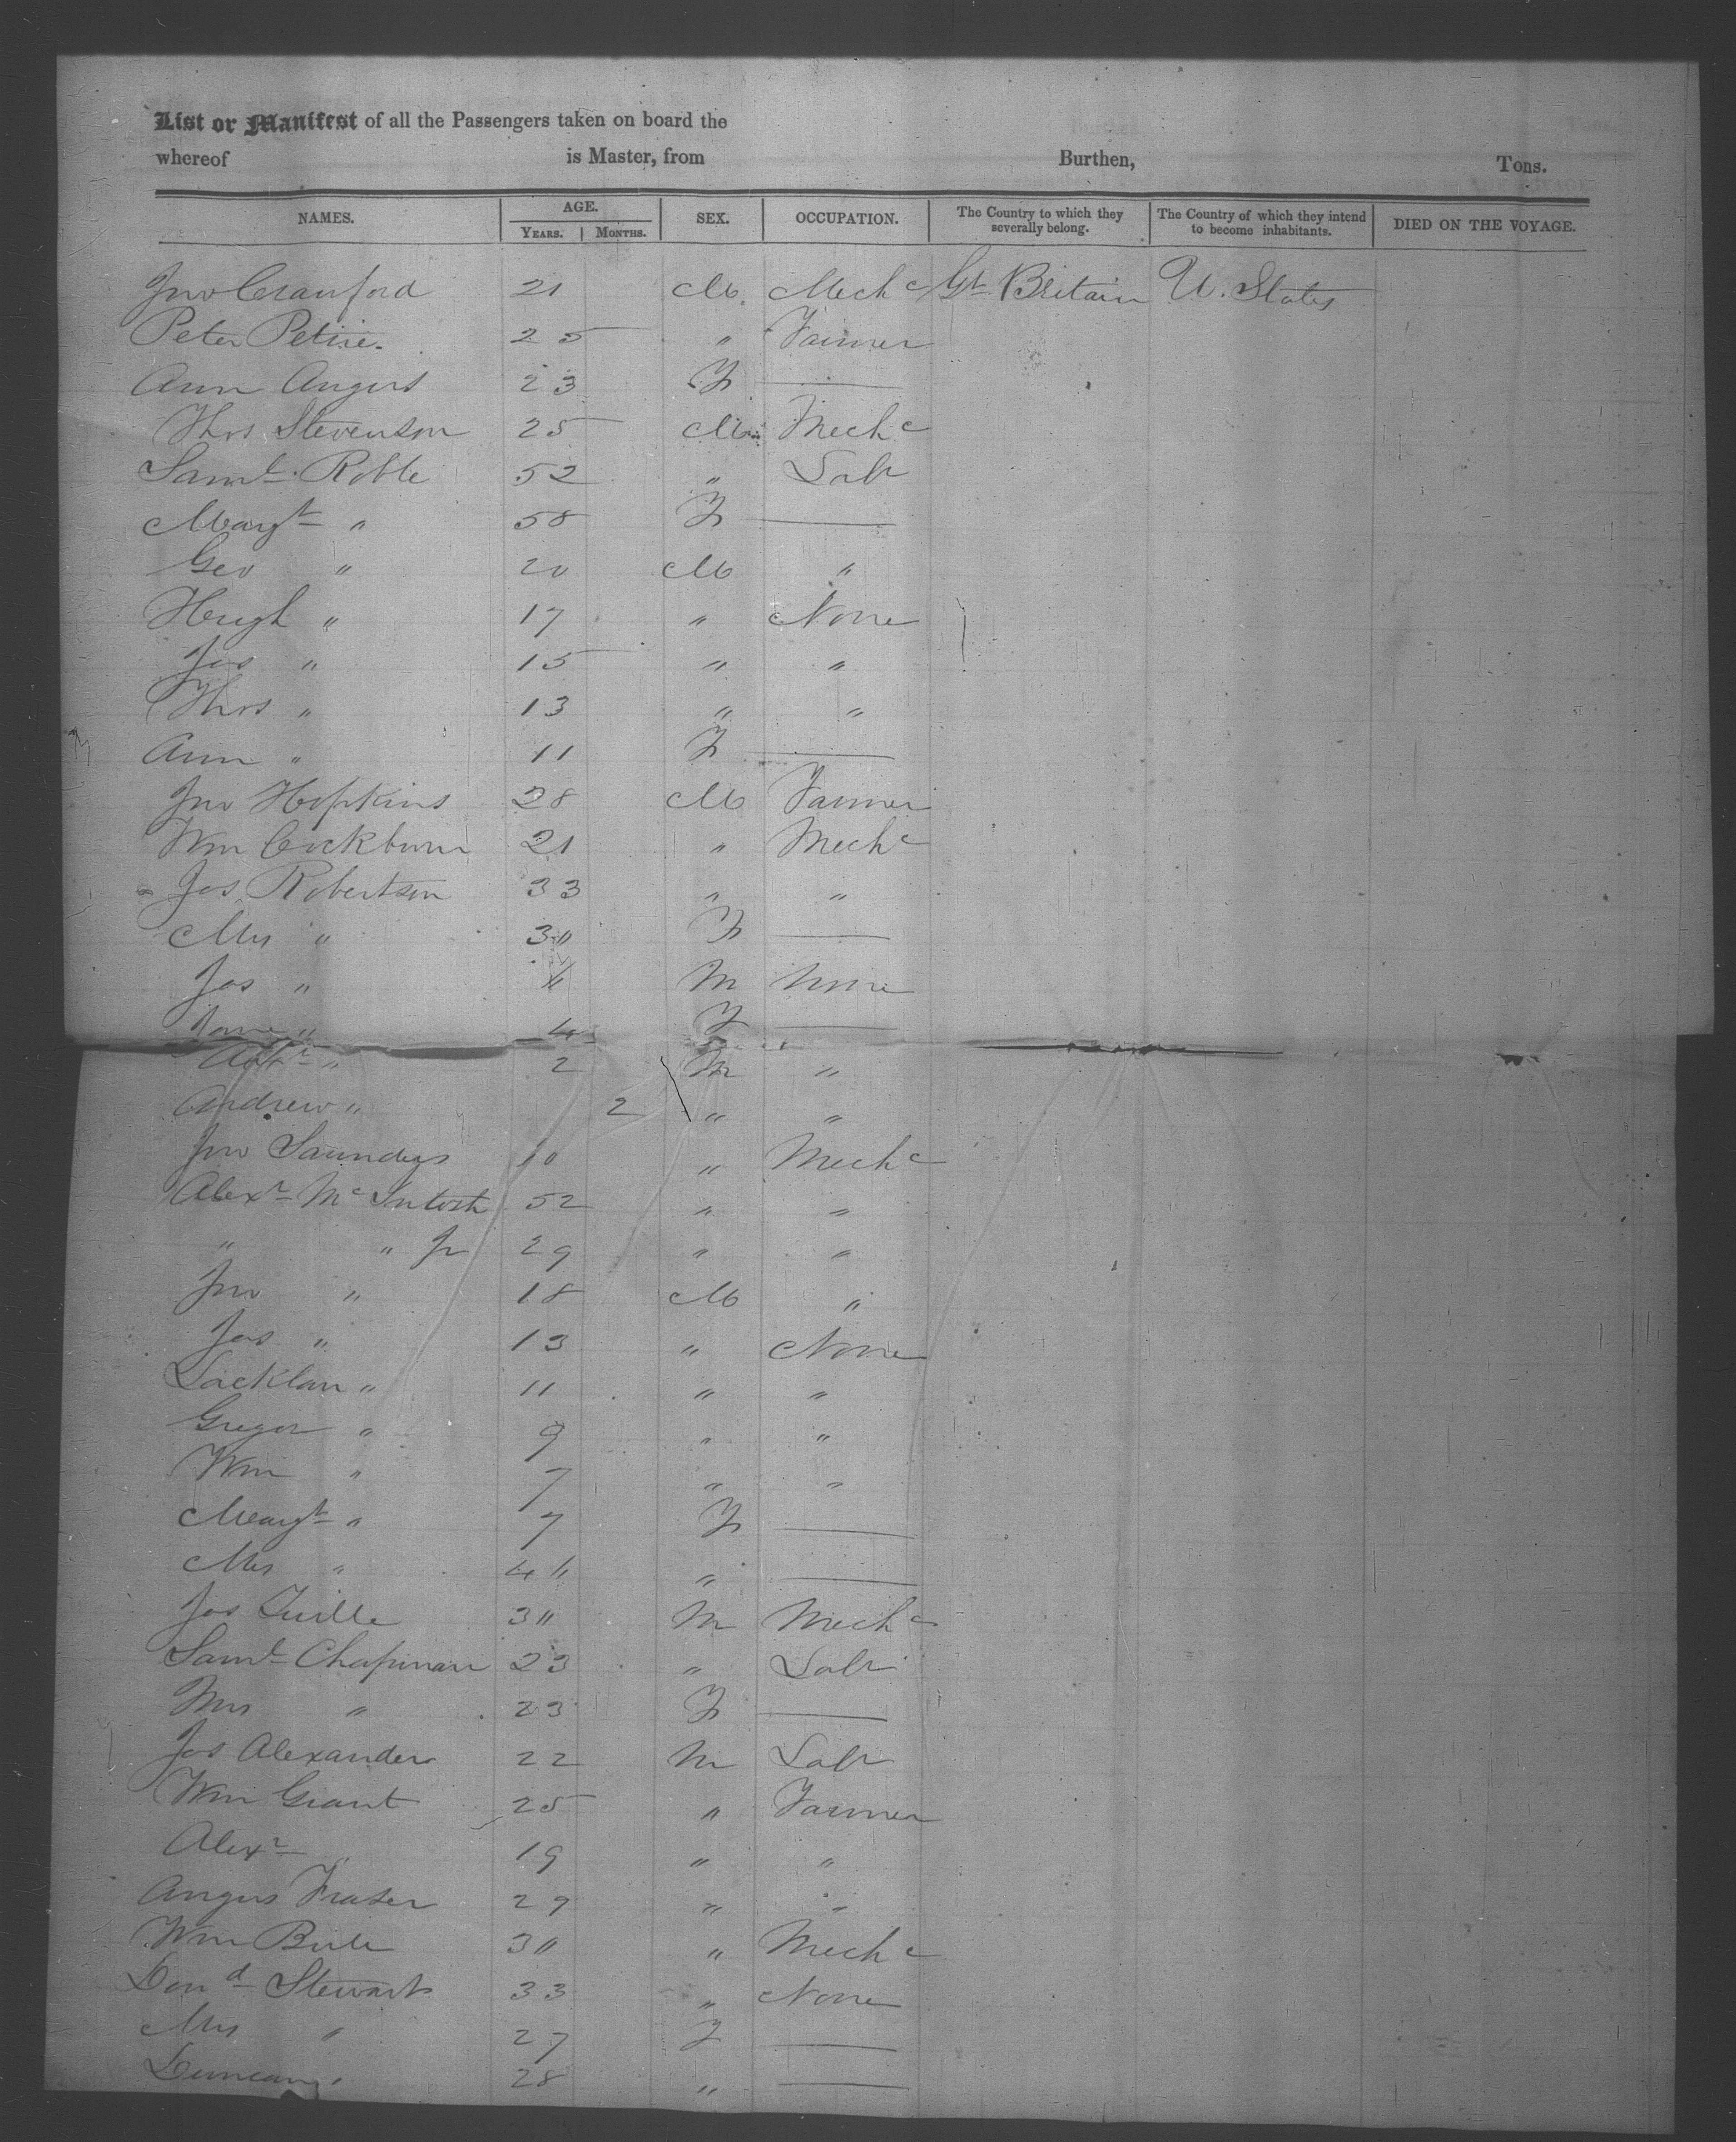 List or Manifest of all the Passengers taken on board the
whereof is Master, from Burthen, Tons.
NAMES. AGE. SEX. OCCUPATION. The Country to which they severally belong. The Country of which they intend to become inhabitants. DIED ON THE VOYAGE.
YEARS. MONTHS.
Jno Crauford 21 M Mechc Gt Britain U. States
Peter Petrie 25 " Farmer
Ann Angus 23 F —
Thos Stevenson 25 M Mechc
Saml Roble 52 " Labr
Margt " 58 F —
Geo " 20 M "
Hugh " 17 " None
Jas " 15 " "
Thos " 13 " "
Ann " 11 F —
Jno Hopkins 28 M Farmer
Wm Cockburn 21 " Mechc
Jas Robertson 33 " "
Mrs " 30 F —
Jas " M None
Jane " 4 F —
Robt " 2 M "
Andrew " 2 " "
Jno Saunders " Mechc
Alexr McIntosh 52 " "
" " Jr 29 " "
Jno " 18 M "
Jas " 13 " None
Lacklan " 11 " "
Gregor " 9 " "
Wm " 7 " "
Margt " 7 F —
Mrs " " —
Jas M Mechc
Saml Chapman 23 " Labr
Mrs " 23 F —
Jas Alexander 22 M Labr
Wm Grant 25 " Farmer
Alexr " 19 " "
Angus Fraser 29 " "
Wm " Mechc
Dond Stewart 33 " None
Mrs " 27 F —
Duncan " 28 " —